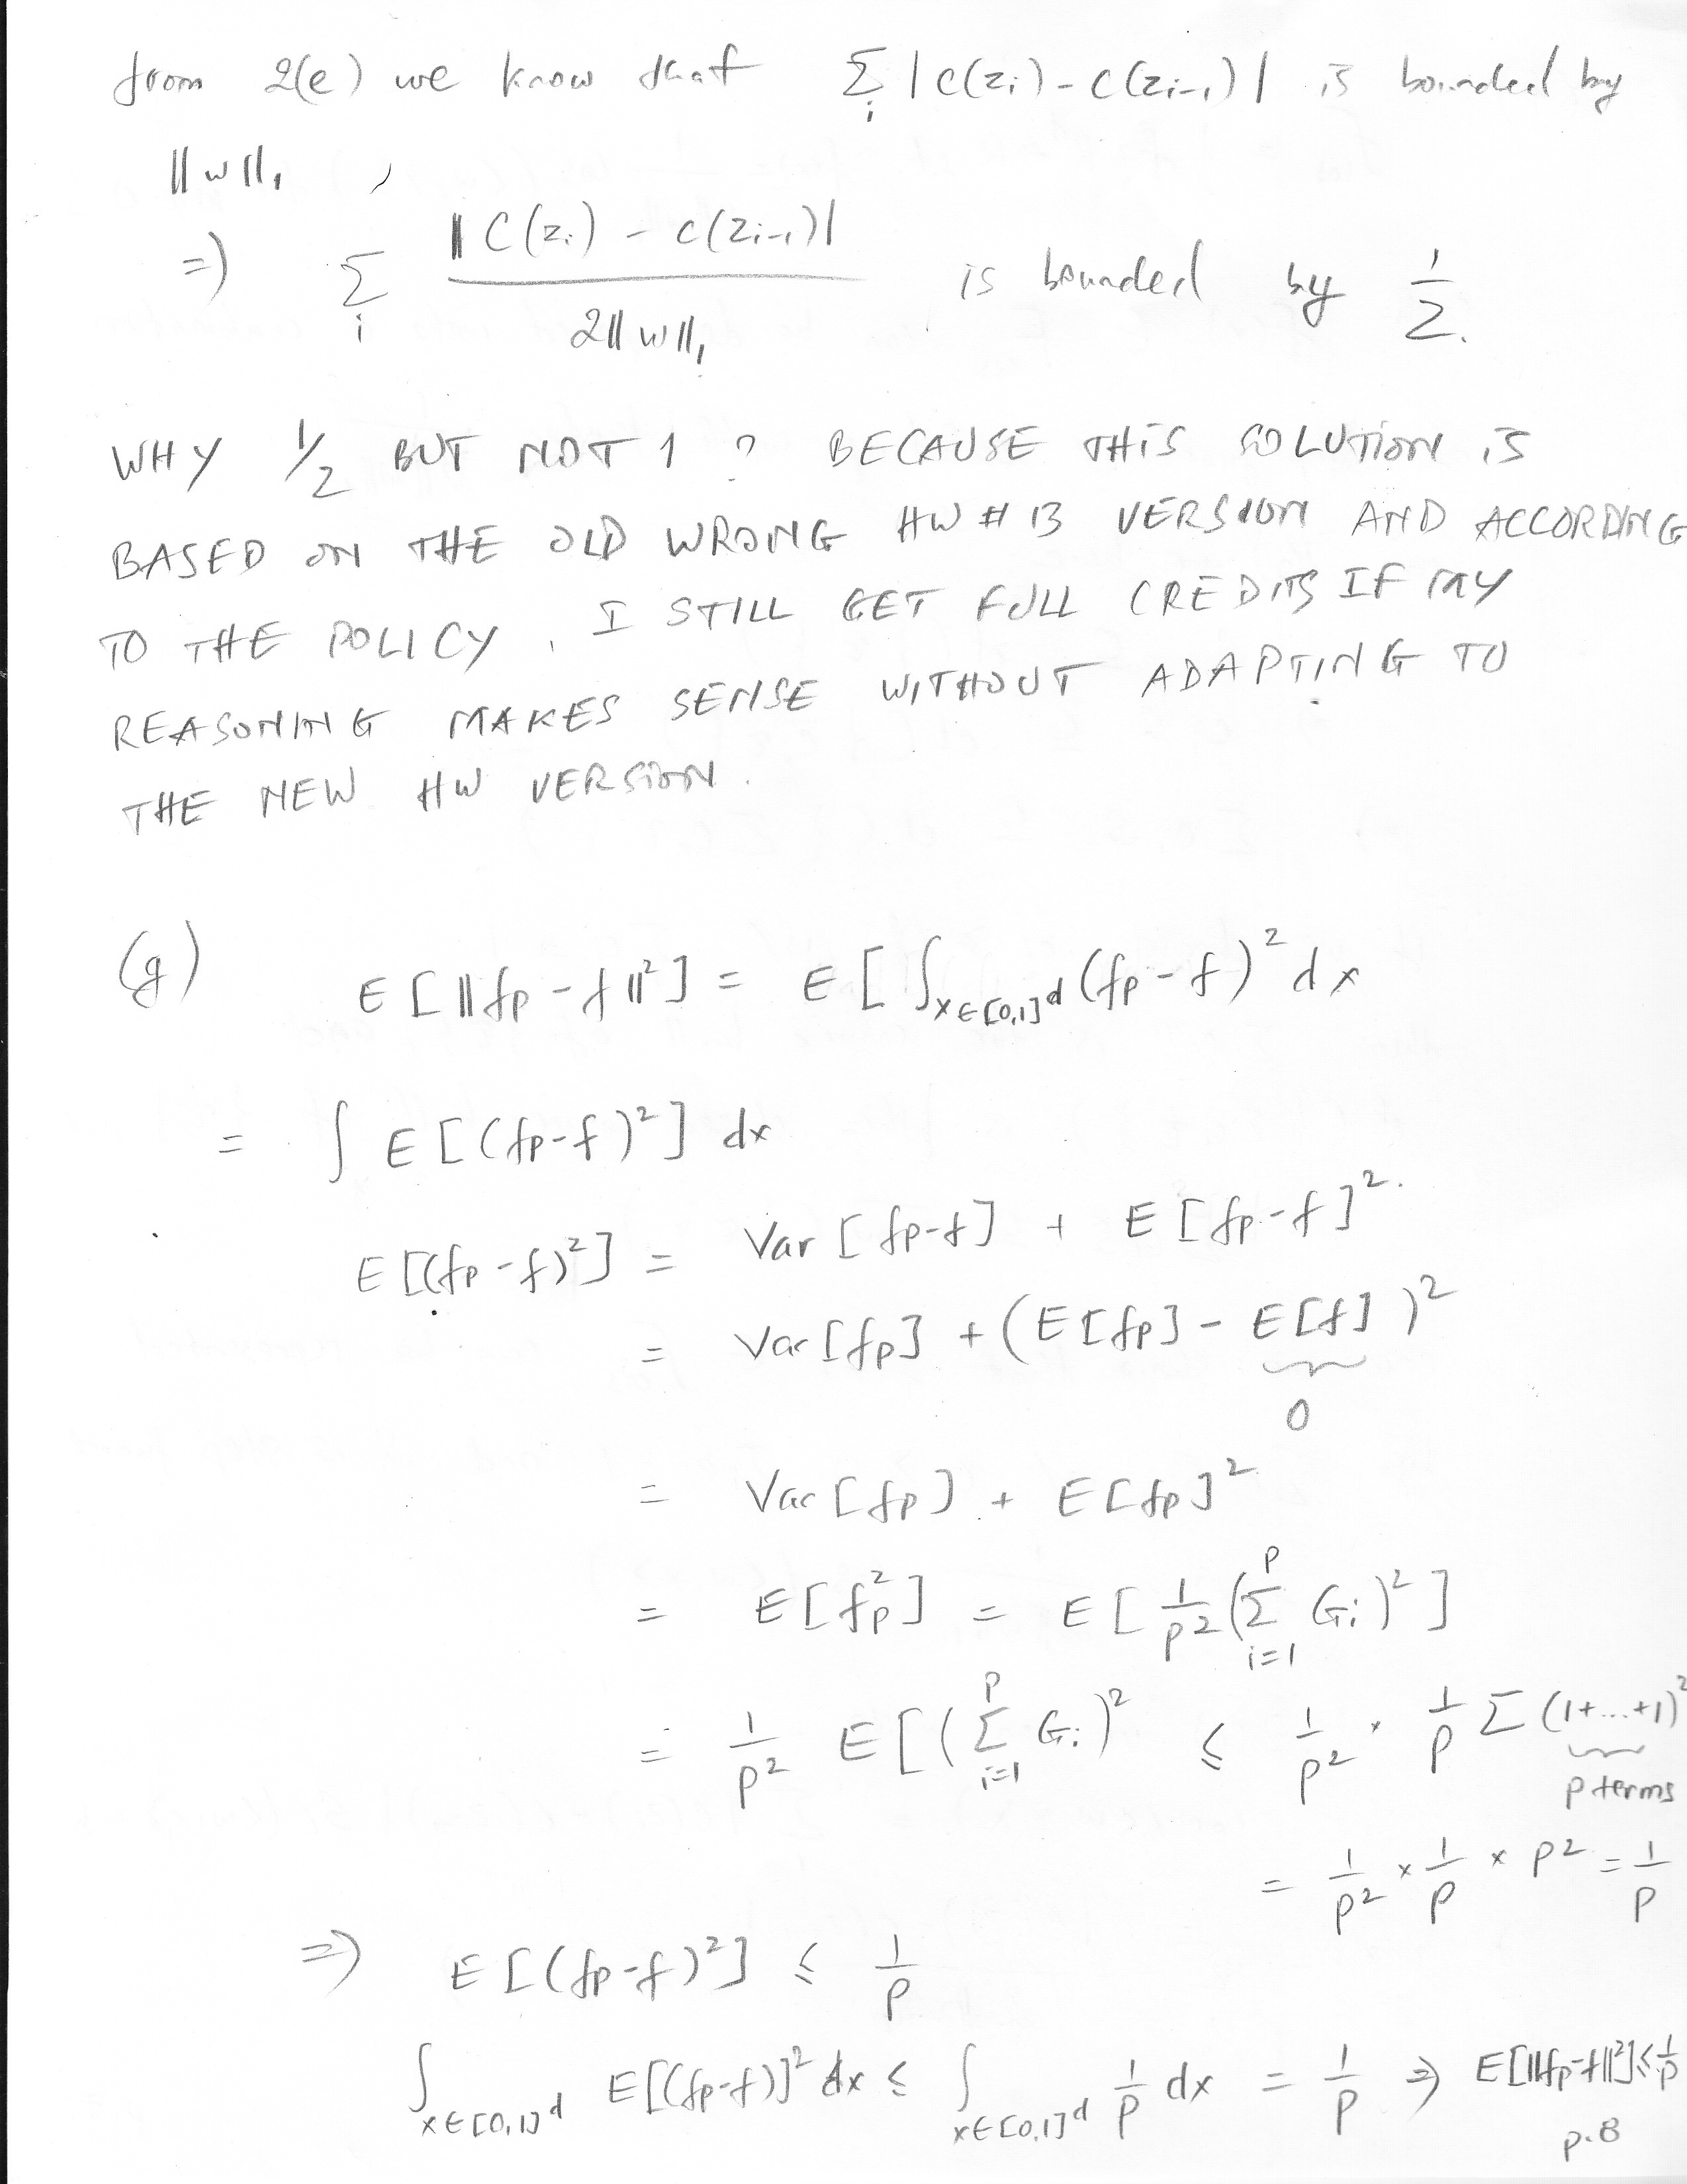 from 2(e) we know that ∑_i |C(z_i) - C(z_{i-1})| is bounded by
||w||_1 ,
=> ∑_i |C(z_i) - C(z_{i-1})| / 2||w||_1 is bounded by 1/2.
WHY 1/2 BUT NOT 1 ? BECAUSE THIS SOLUTION IS
BASED ON THE OLD WRONG HW # 13 VERSION AND ACCORDING
TO THE POLICY, I STILL GET FULL CREDITS IF MY
REASONING MAKES SENSE WITHOUT ADAPTING TO
THE NEW HW VERSION.
(g) E[||fp - f||²] = E[∫_{x∈[0,1]^d} (fp - f)² dx
= ∫ E[(fp-f)²] dx
E[(fp-f)²] = Var[fp-f] + E[fp-f]².
= Var[fp] + (E[fp] - E[f])²
0
= Var[fp] + E[fp]²
= E[fp²] = E[1/p² (∑_{i=1}^p G_i)²]
= 1/p² E[(∑_{i=1}^p G_i)² ≤ 1/p² · 1/p ∑ (1+...+1)²
p terms
= 1/p² × 1/p × p² = 1/p
=> E[(fp-f)²] ≤ 1/p
∫_{x∈[0,1]^d} E[(fp-f)]² dx ≤ ∫_{x∈[0,1]^d} 1/p dx = 1/p => E[||fp-f||²] ≤ 1/p
p.8